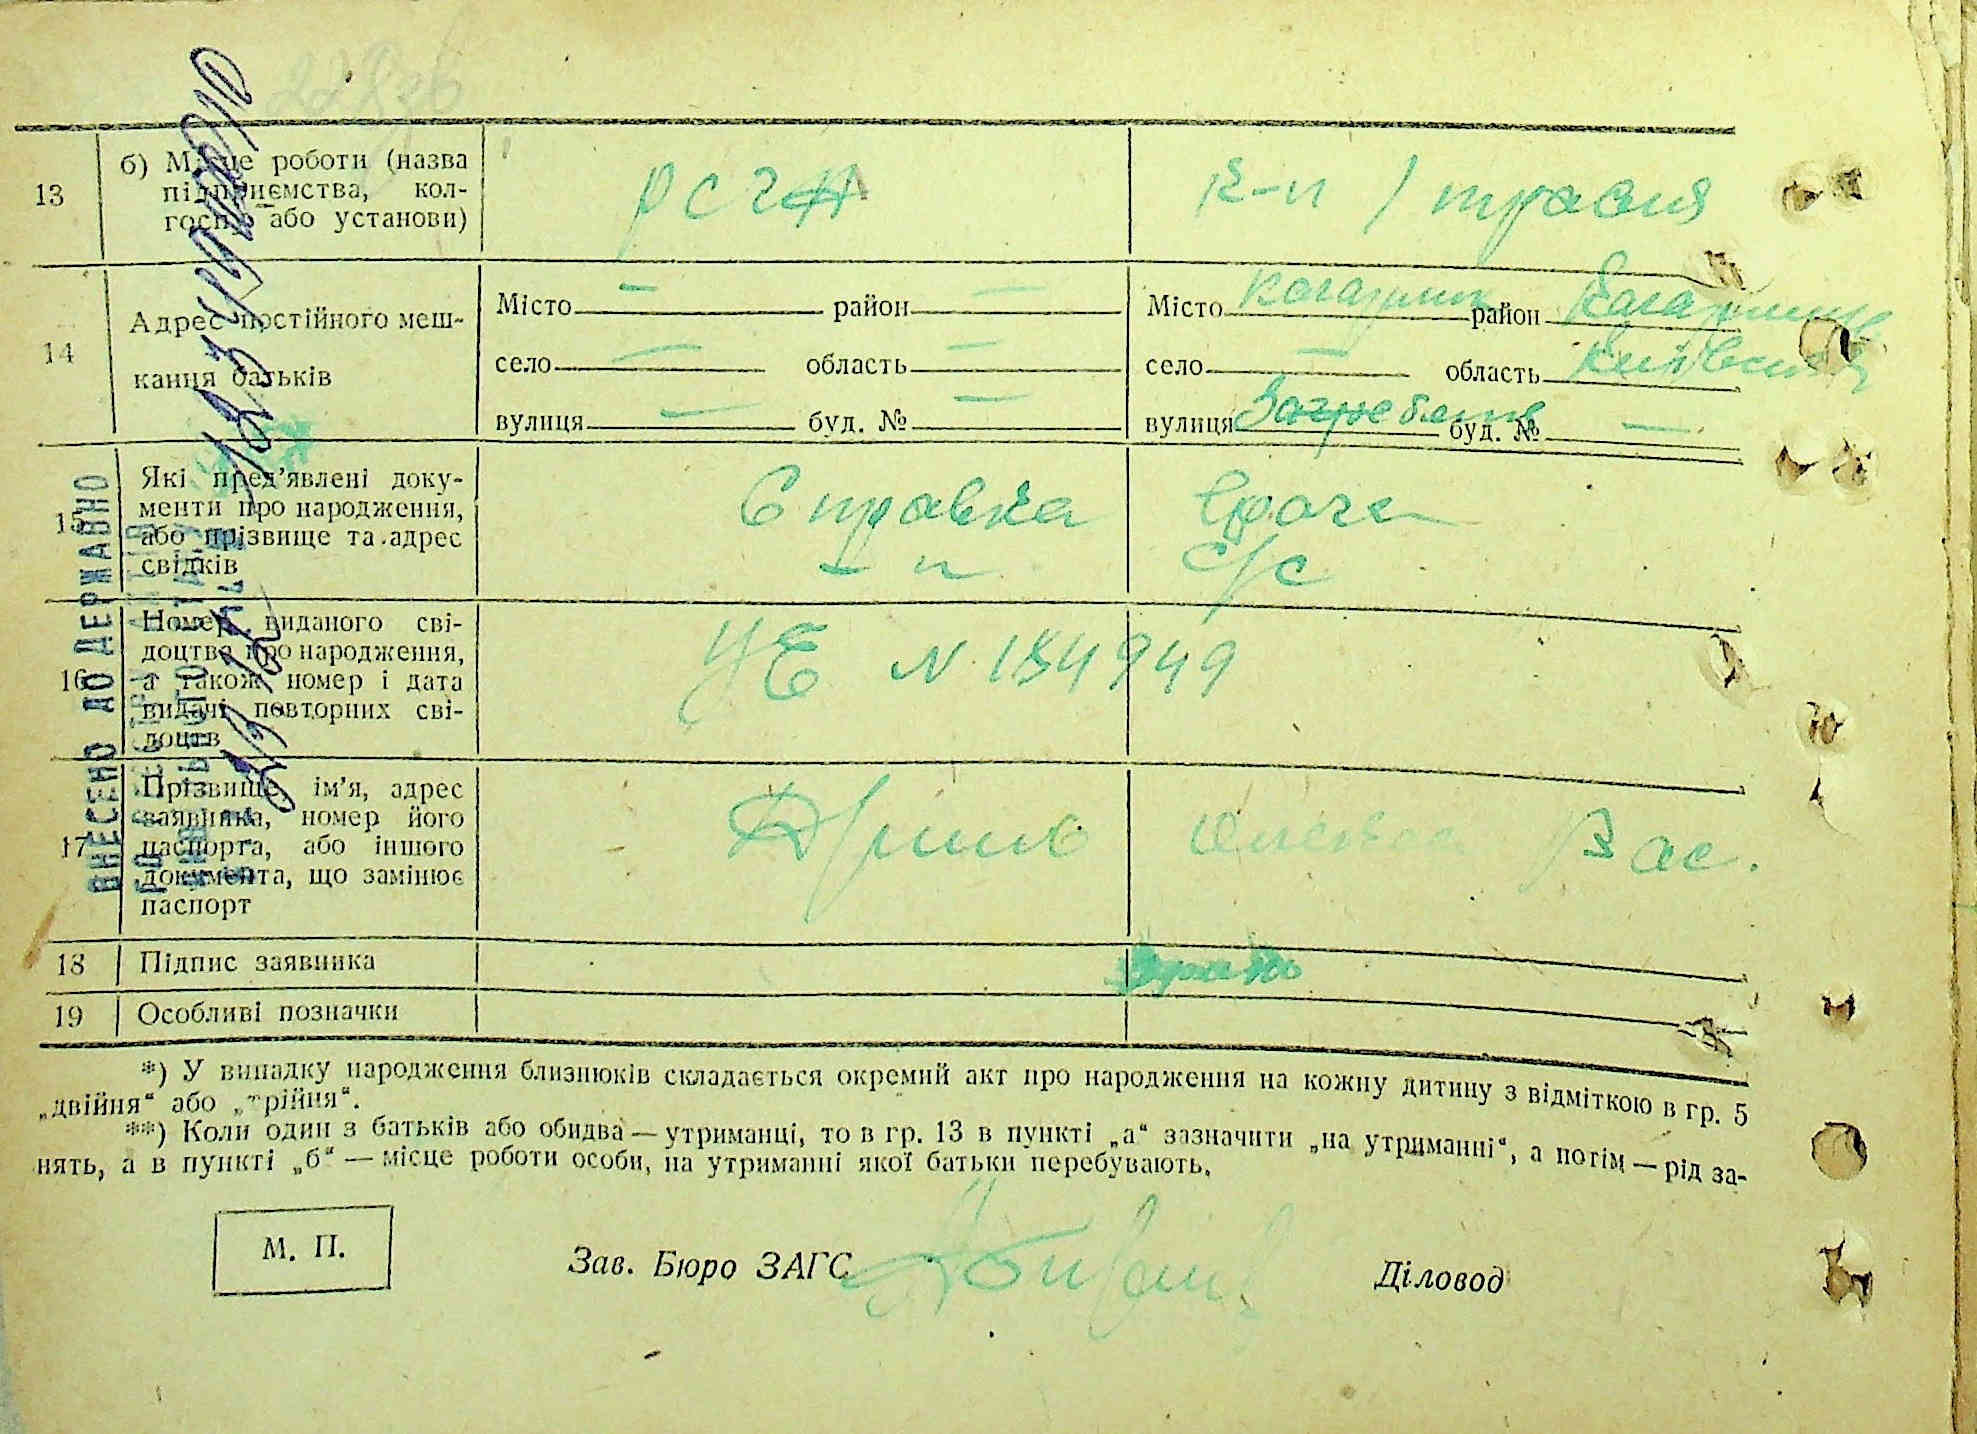 13
б) Місце роботи (назва
підприємства, кол-
госпу або установи)
РСЧА
к-п 1 травня
14
Адрес постійного меш-
кання батьків
Місто — район —
село — область —
вулиця — буд. № —
Місто Кагарлик район Кагарлицьк
село — область Київська
вулиця буд. № —
15
Які пред'явлені доку-
менти про народження,
або прізвище та адрес
свідків
Справка врача
с/с
16
Номер виданого сві-
доцтва про народження,
а також номер і дата
видачі повторних сві-
доцтв
УЕ N 184949
17
Прізвище, ім'я, адрес
заявника, номер його
паспорта, або іншого
документа, що замінює
паспорт
Вас.
18
Підпис заявника
19
Особливі позначки
ВНЕСЕНО ДО ДЕРЖАВНО
*) У випадку народження близнюків складається окремий акт про народження на кожну дитину з відміткою в гр. 5
„двійня“ або „трійня“.
**) Коли один з батьків або обидва — утриманці, то в гр. 13 в пункті „а“ зазначити „на утриманні“, а потім — рід за-
нять, а в пункті „б“ — місце роботи особи, на утриманні якої батьки перебувають.
М. П.
Зав. Бюро ЗАГС
Діловод